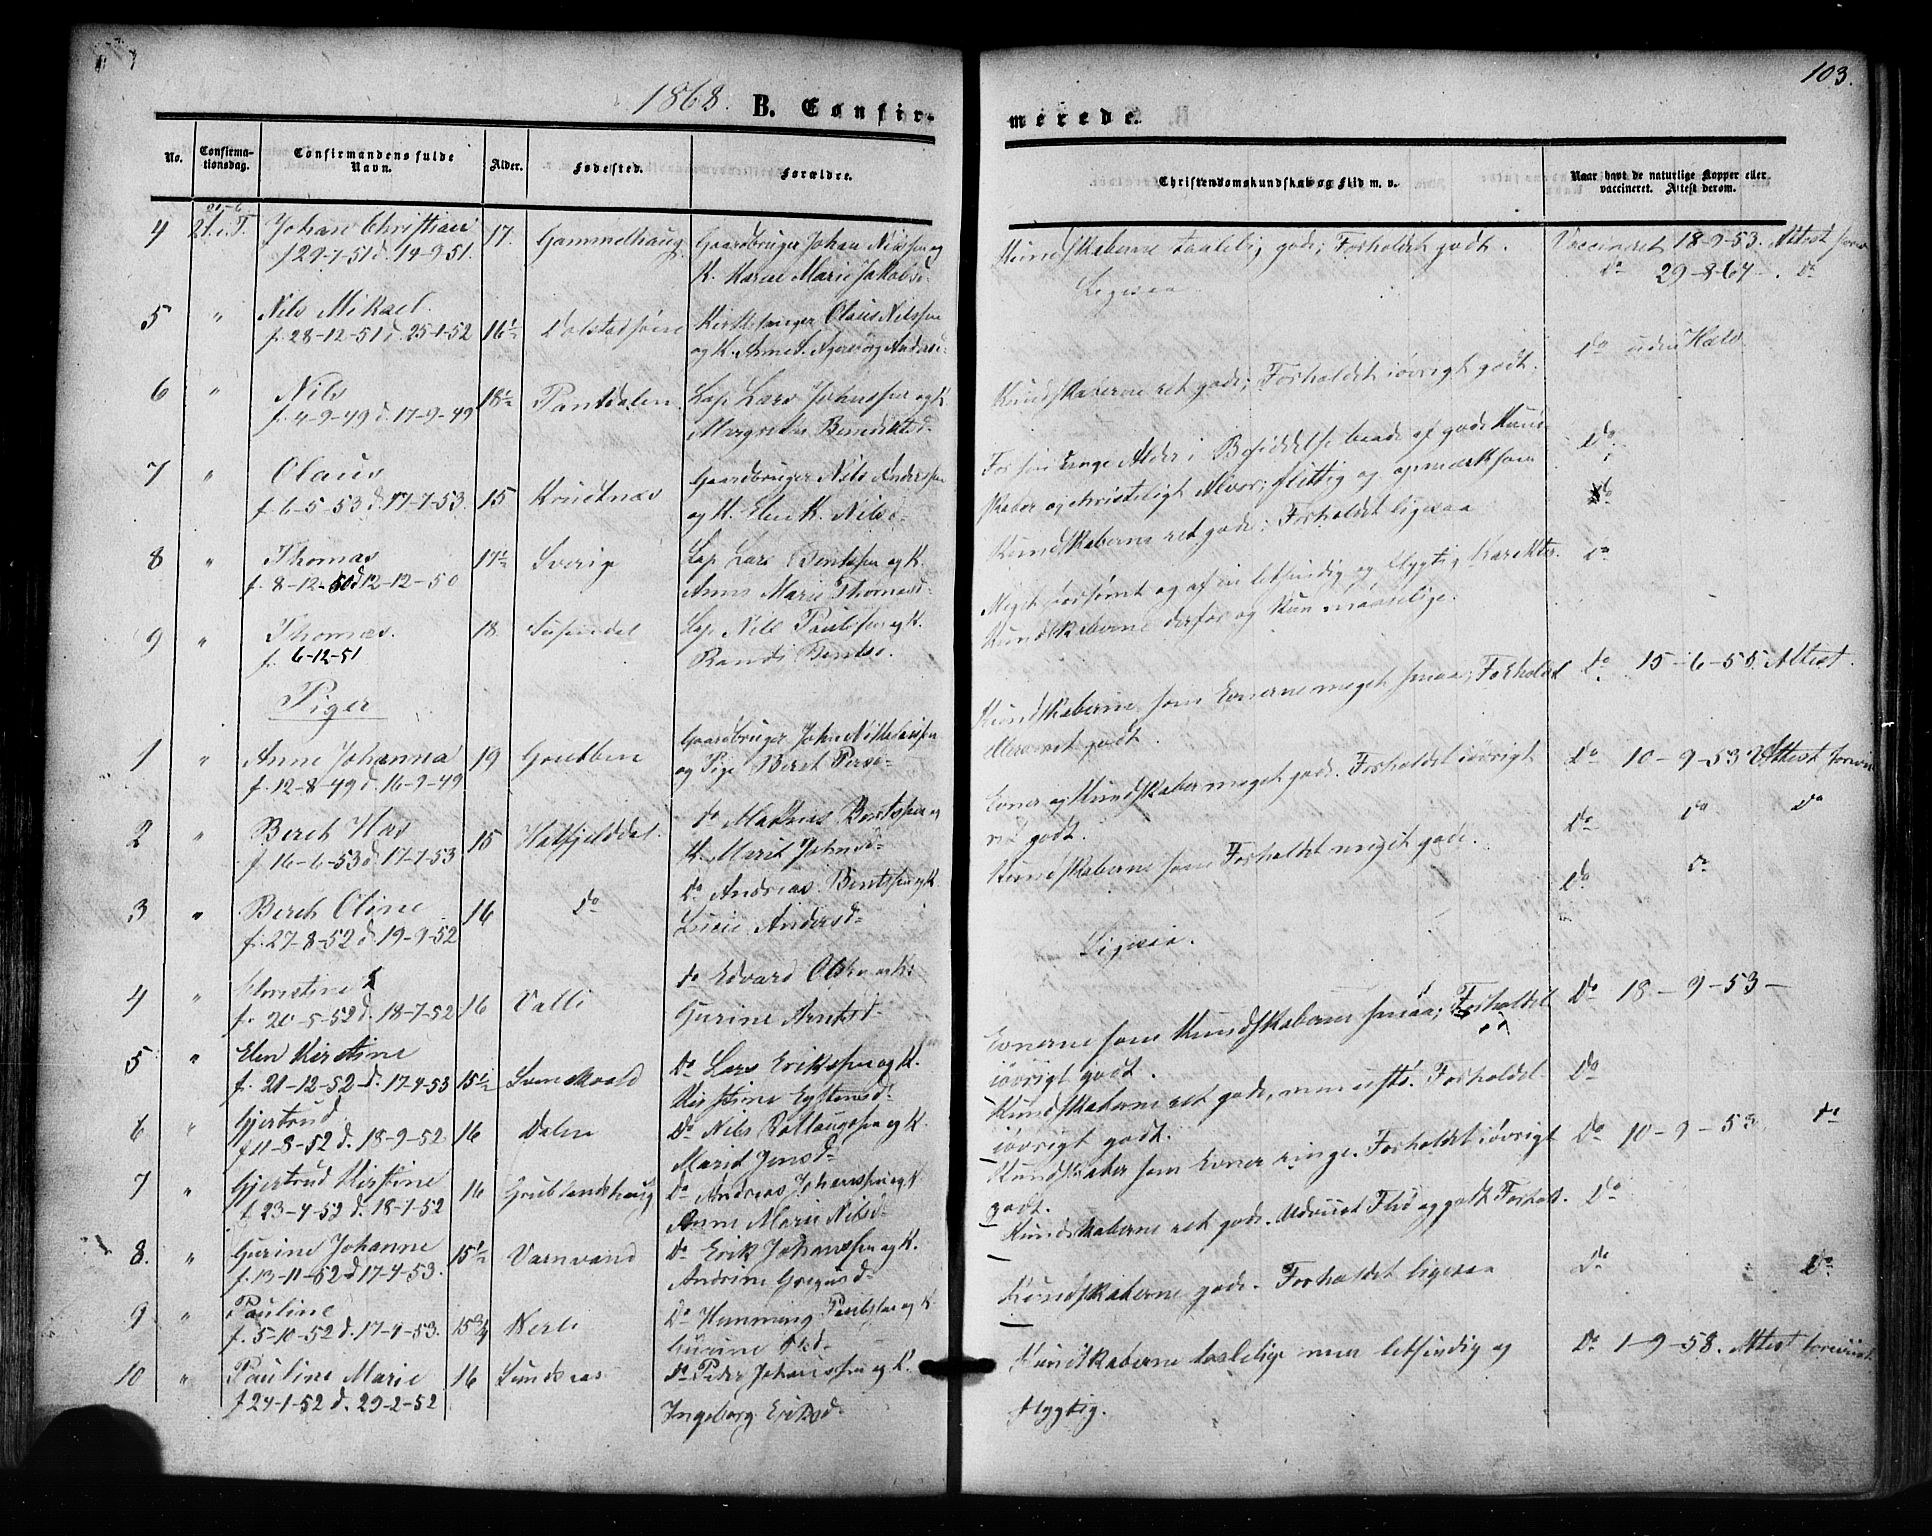 103.
1868. B. Confirmerede.
No. Confirmationsdag. Confirmandens fulde Navn. Alder. Fødested. Forældre. Christendomskundskab og Flid m. v. Naar havt de naturlige Kopper eller vaccineret. Attest derom.
4 21 e. T. Johan Christian 17. Gammelhaug Gaardbruger Johan Nilssen og
f 29-7-51 d. 14-9-51. K. Karen Marie Jakobsd.
Kundskaberne taalelig gode; Forholdet godt. Vaccineret 18-9-53. Attest
Do 29-8-64 Do
5 " Nils Mikael 16½ Dolstadsøien Kirkesanger Olaus Nilssen
f. 28-12-51 d. 25-1-52 og K.
Ligesaa Do uden
6 " Nils 18½ Pantdalen Lap Lars Johanssen og K
f. 4-9-49 d. 17-9-49 Margrethe Bendiktsd.
Kundskaberne ret gode; Forholdet iøvrigt godt.
7 " Olaus 15 Krudtnæs Gaardbruger Nils Anderssen
f. 6-5-53 d. 17-7-53. og K. Elen K. Nilsd.
For sin unge Alder i Besiddelse baade af gode Kund- Do
skaber og christeligt Alvor; flittig og opmærksom
8 " Thomas 17½ Sverige Lap Lars Bentssen og K.
f. 8-12-50 d 12-12-50 Anna Marie Thomasd.
Kundskaberne ret gode; Forholdet ligesaa Do
9 " Thomas. 18. Susendal Lap Nils Paulssen og K.
f. 6-12-51 Randi Bentsd.
Meget forsømt og af en letsindig og flygtig Karakter. Do
Kundskaberne derfor og kun maadelige.
Piger
1 " Anne Johanna 19 Gaardbruger Joh. Mikkelssen
f. 12-8-49 d 16-9-49 og Pige Beret Persd.
Kundskaberne som Evnerne meget smaa; Forholdet Do 15-6-55. Attest.
ret godt.
2 " Beret 15 Hatfjelddal Do Mathias Bentssen og
f 16-6-53 d 17-7-53 K. Marit Johnsd.
Evner og Kundskaber meget gode. Forholdet iøvrigt Do 10-9-53 Attest
ret godt. Do Do Do
3 " Beret Oline 16 Do Do Andreas Bentssen og K
f. 27-8-52 d. 19-9-52 Lucie Andersd.
Kundskaberne som Forholdet meget gode. Do Do
4 " Christine 16 Valli Do Edvard Olsen og K.
f. 20-5-52 d. 18-7-52 Gurine Arntsd.
Ligesaa.
5 " Elen Kirstine 15½ Svenskvold Do Lars Erikssen og K.
f. 21-12-52 d. 17-4-53 Kirstine
Evnerne som Kundskaberne smaa; Forholdet Do 18-9-53-
iøvrigt godt.
6 " Gjertrud 16 Dalen Do Nils Rollaugssen og K.
f 11-8-52 d. 18-9-52 Marit Jensd.
Kundskaberne ret gode, Forholdet Do
iøvrigt godt.
7 " Gjertrud Kirstine 16 Grublandshaug Do Andreas Johanssen og K
f. 23-4-52 d. 18-7-52 Anne Marie Nilsd.
Kundskaber som Evner ringe. Forholdet iøvrigt Do 10-9-53. Do
godt.
8. " Gurine Johanne 15½ Varnvand Do Erik Johanssen og K.
f. 13-11-52 d 17-4-53. Andrine Gregusd.
Kundskaberne ret gode. Udviist Flid og godt Forhold. Do
9 " Pauline 15¾ Nerli Do Hemming Paulssen og K
f. 5-10-52 d. 17-4-53. Gurine Olsd.
Kundskaberne gode. Forholdet ligesaa Do Do
10 " Pauline Marie 16 Lundnæs Do Peder Johanssen og K.
f 24-1-52 d. 29-2-52 Ingeborg Eriksd.
Kundskaberne taalelige men letsindig og Do 1-9-58. Attest foreviist
flygtig.